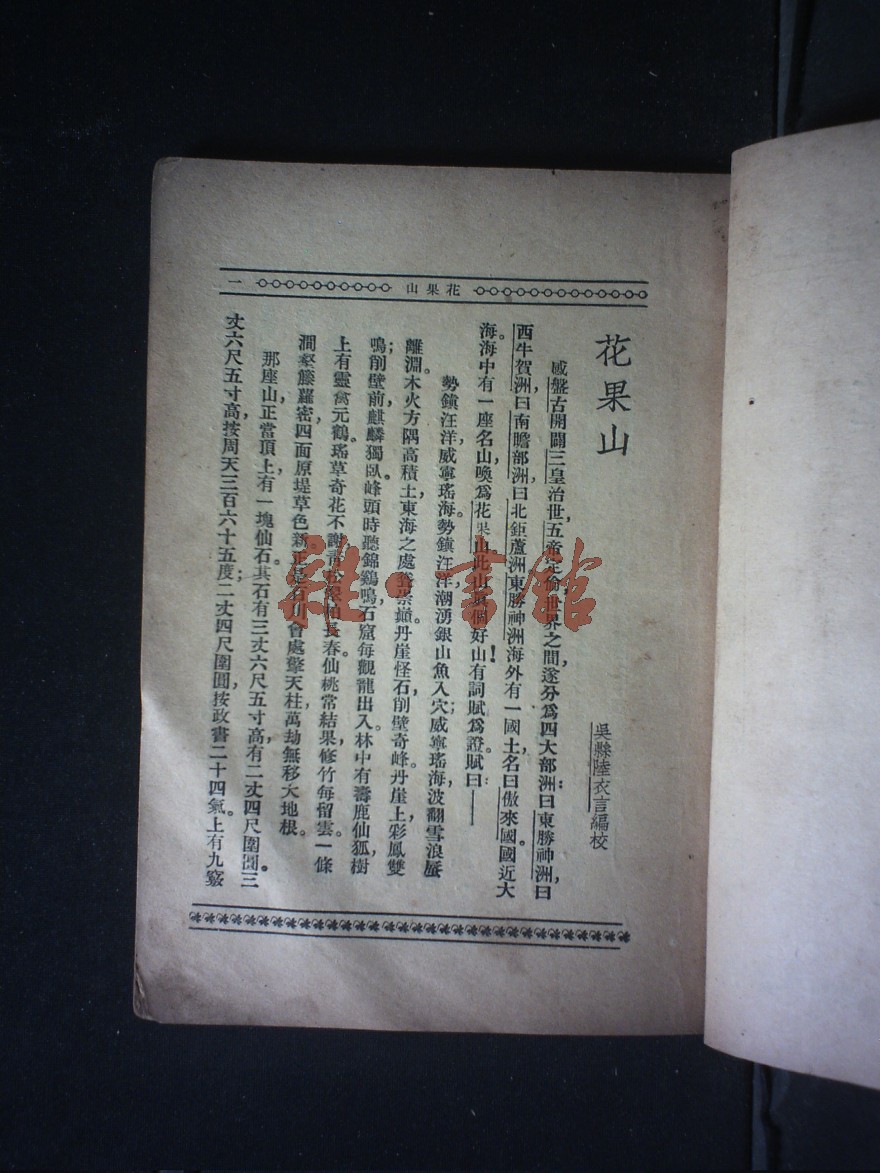 花果山 一
花果山
吳縣陸衣言編校
感盤古開闢，三皇治世，五帝定倫，世界之間，遂分爲四大部洲：曰東勝神洲，曰
西牛賀洲，曰南贍部洲，曰北鉅蘆洲。東勝神洲海外有一國土，名曰傲來國。國近大
海。海中有一座名山，喚爲花果山。此山眞個好山！有詞賦爲證。賦曰：——
勢鎭汪洋，威寧瑤海。勢鎭汪洋，潮湧銀山魚入穴；威寧瑤海，波翻雪浪蜃
離淵。木火方隅高積土，東海之處崇巔。丹崖怪石，削壁奇峰。丹崖上，彩鳳雙
鳴；削壁前，麒麟獨臥。峰頭時聽錦鷄鳴，石窟每觀龍出入。林中有壽鹿仙狐，樹
上有靈禽元鶴。瑤草奇花不謝，靑松 長春。仙桃常結果，修竹每留雲。一條
澗壑籐蘿密，四面原堤草色新。正是百川會處擎天柱，萬劫無移大地根。
那座山，正當頂上，有一塊仙石。其石有三丈六尺五寸高，有二丈四尺圍圓。三
丈六尺五寸高，按周天三百六十五度；二丈四尺圍圓，按政書二十四氣。上有九竅
雜·書館